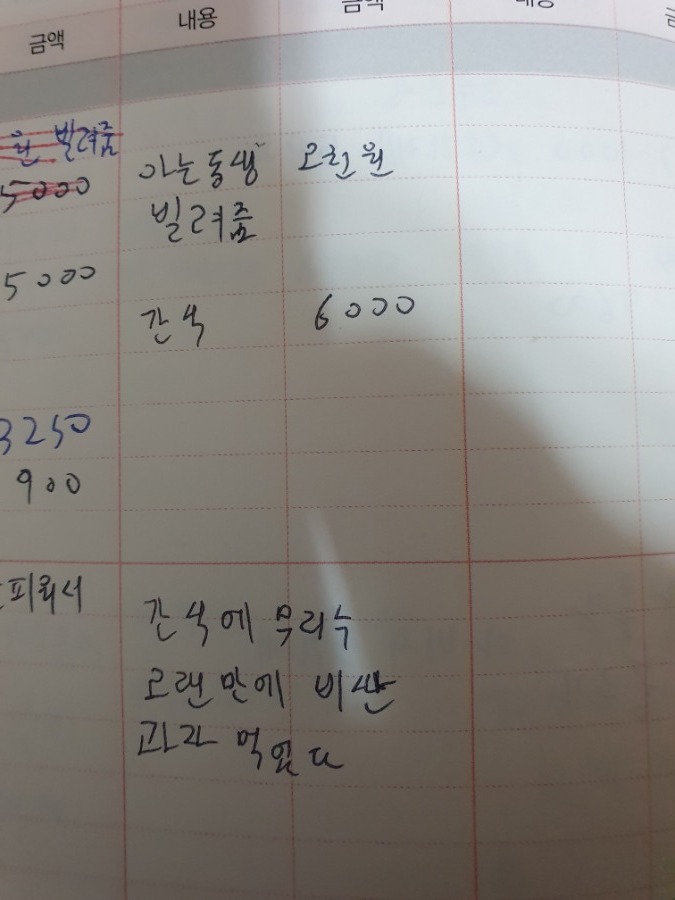 금액 내용 금액 내용
원 빌려줌
5000
아는동생 오천원
빌려줌
5000
간식 6000
3250
900
피워서
간식에 무리수
오랜만에 비싼
과자 먹었다